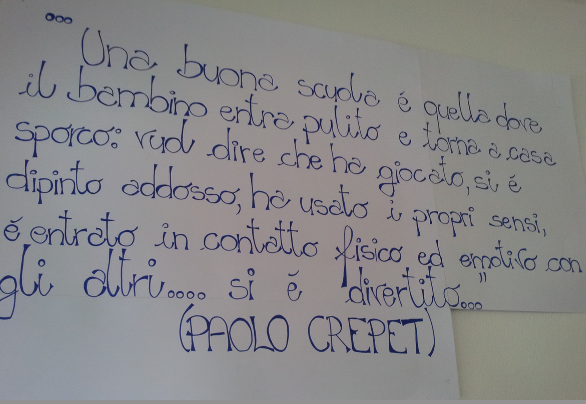 °°° Una buona scuola é quella dove
il bambino entra pulito e torna a casa
sporco: vuol dire che ha giocato, si é
dipinto addosso, ha usato i propri sensi,
é entrato in contatto fisico ed emotivo con
gli altri.... si é divertito..."
(PAOLO CREPET)